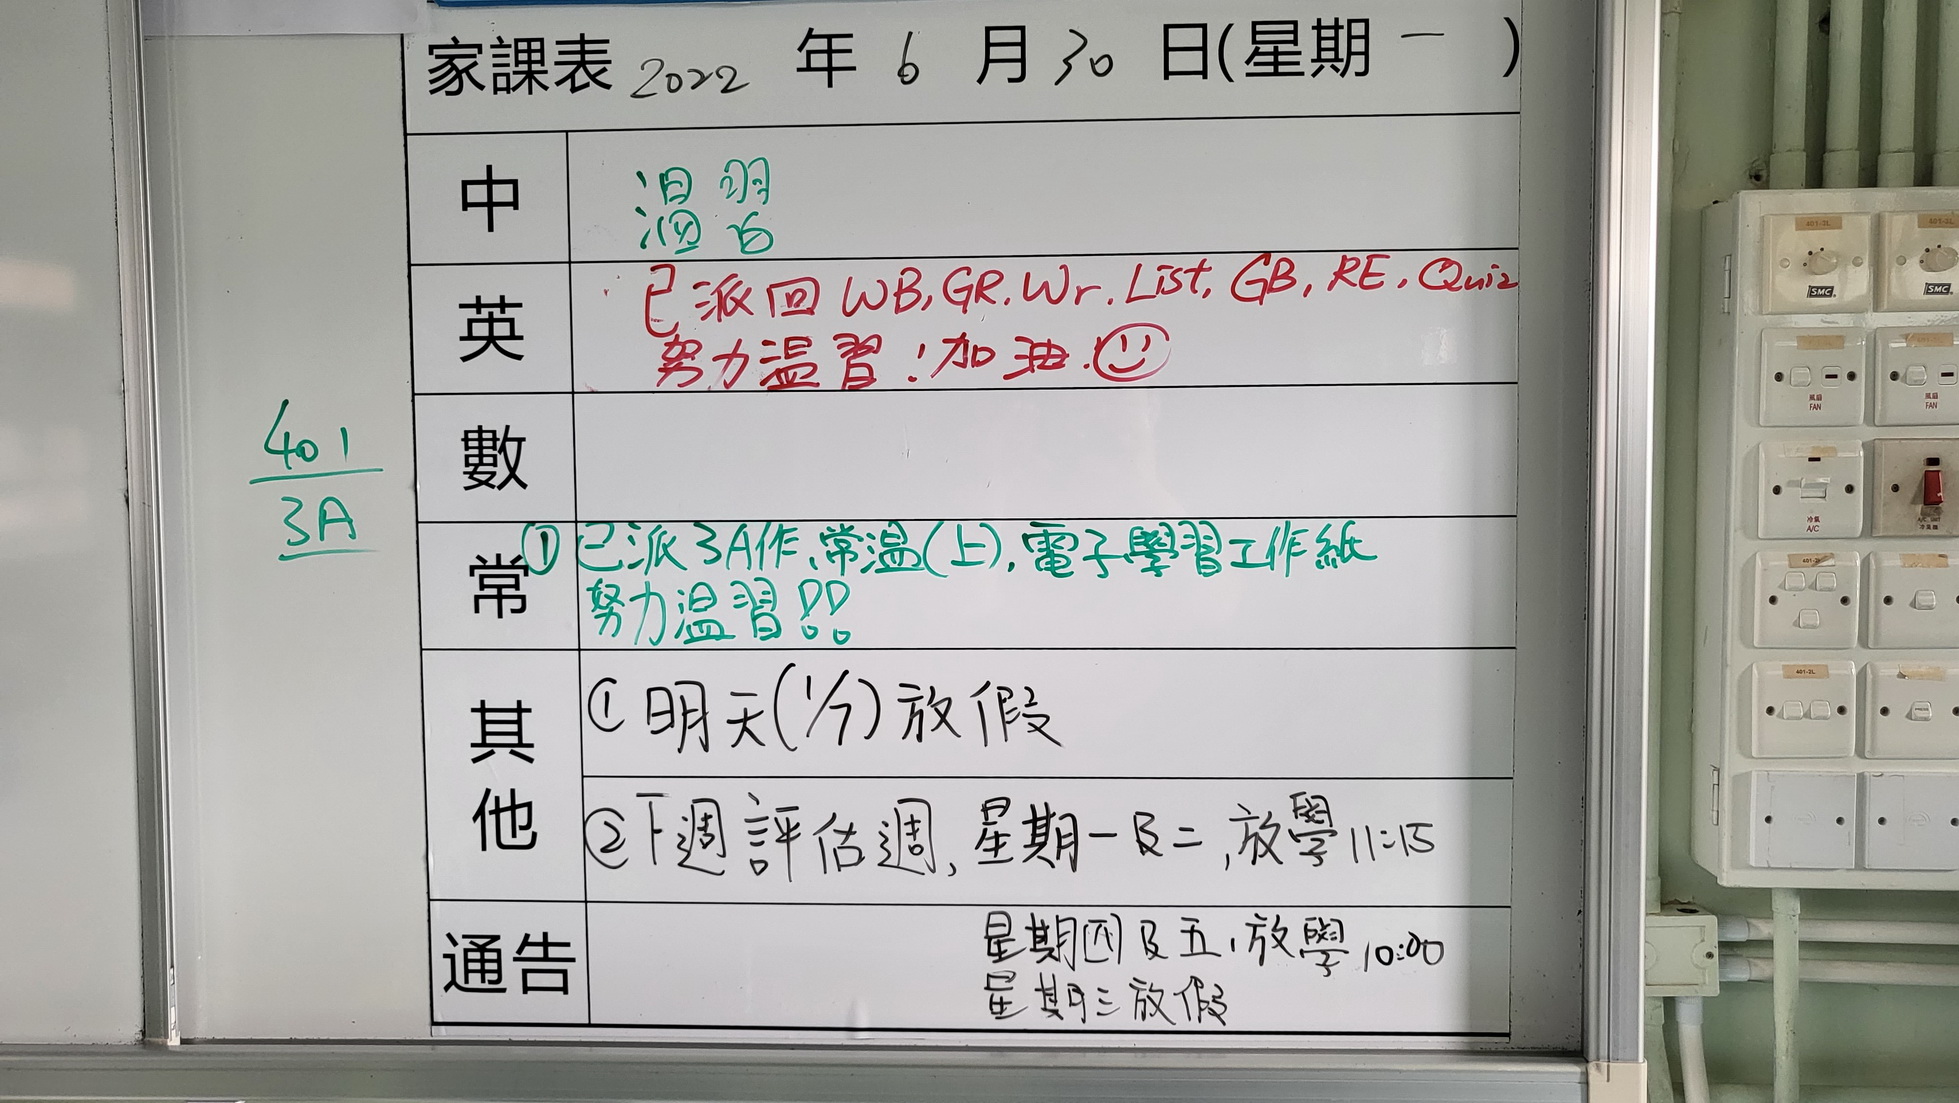 家課表 2022 年 6 月 30 日(星期 一 )
中
温習
英
已派回 WB, GR, Wr, List, GB, RE, Quiz
努力温習！加油！
數
401
3A
常
① 已派3A作、常温(上), 電子學習工作紙
努力温習!!
其他
① 明天(1/7)放假
② 下週評估週, 星期一及二, 放學 11:15
通告
星期四及五, 放學 10:00
星期三放假
401-2L
401-2L
SMC
SMC
風扇
FAN
風扇
FAN
冷氣
A/C
401-2L
401-2L